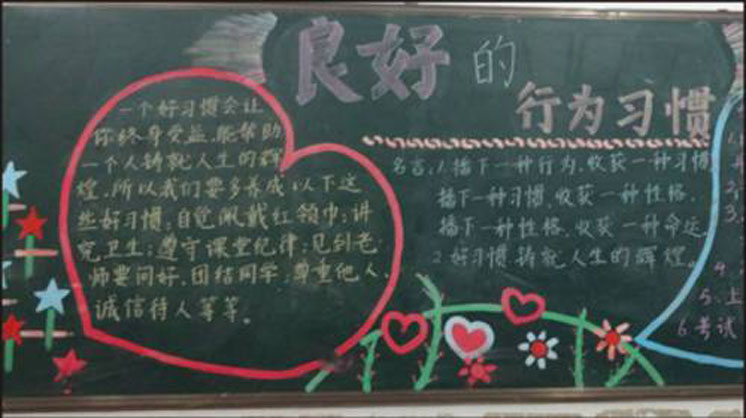 良好的
行为习惯
一个好习惯会让
你终身受益,能帮助
一个人铸就人生的辉
煌,所以我们要多养成以下这
些好习惯:自觉佩戴红领巾;讲
究卫生;遵守课堂纪律;见到老
师要问好,团结同学,尊重他人,
诚信待人等等。
名言:1.播下一种行为,收获一种习惯
播下一种习惯,收获一种性格,
播下一种性格,收获一种命运。
2.好习惯铸就人生的辉煌。
1.
2.
3.
4.
5、上
6考试